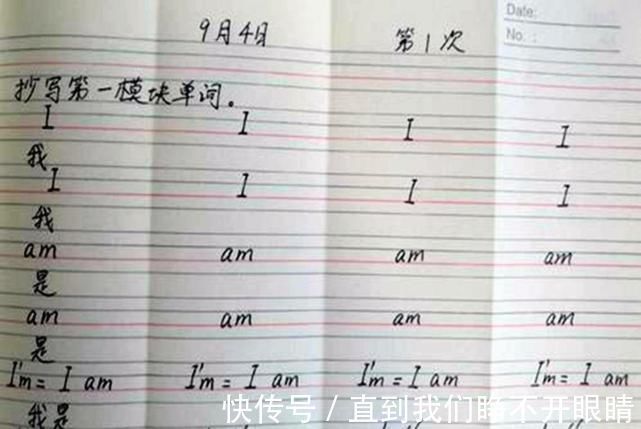 Date:
No. :
9月4日 第1次
抄写第一模块单词。
I I I I
我
I I I I
我
am am am am
是
am am am am
是
I'm = I am I'm = I am I'm = I am I'm = I am
我是
快传号 / 直到我们睁不开眼睛